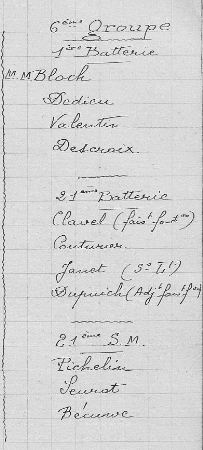 6ème Groupe
1ère Batterie
M.M. Bloch
Dedieu
Valentin
Descroix.
21ème Batterie
Clavel (fais fons)
Couturier
Janet (S. Lt)
Dupuich (Adjt fais fons)
21ème S.M.
Pichelin
Seurat
Bécuwe